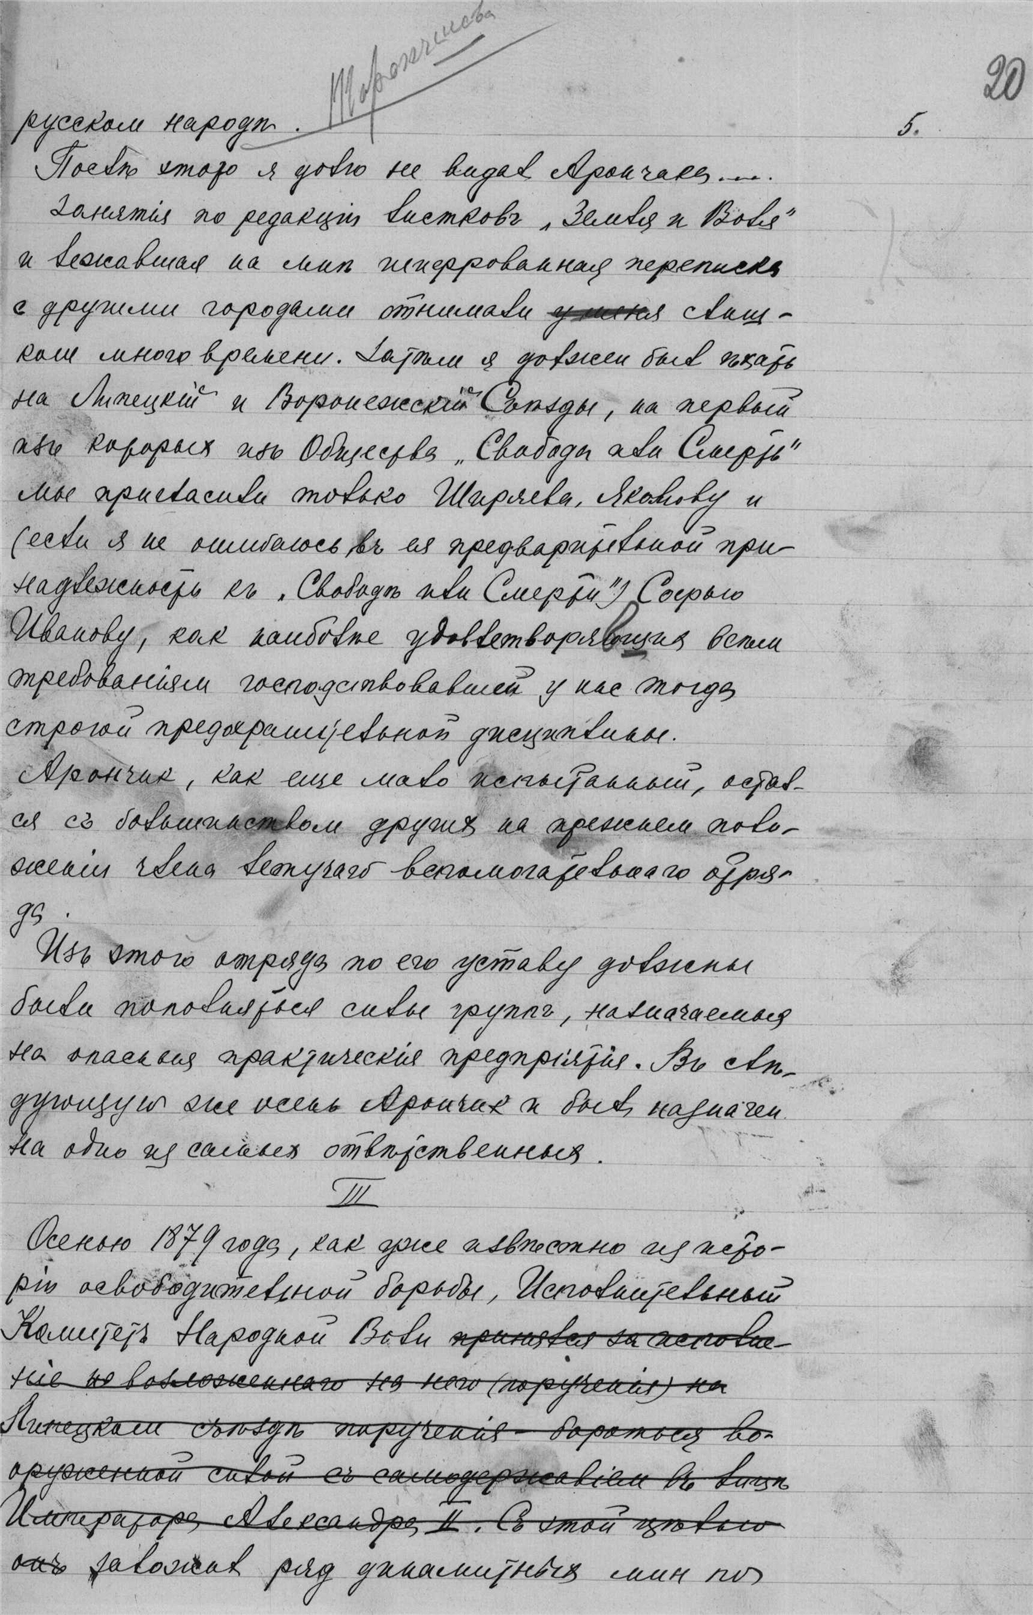 20
5.
русском народѣ.
Послѣ этого я долго не видал Арончика....
Занятія по редакціи листковъ „Земля и Воля"
и лежавшая на мнѣ шифрованная переписка
с другими городами отнимали у меня слиш-
ком много времени. Затѣм я должен был ѣхать
на Липецкій и Воронежскій Съѣзды, на первый
изъ которых изъ Общества „Свобода или Смерть"
мы пригласили только Ширяева, Якимову и
(если я не ошибаюсь въ ея предварительной при-
надлежности къ „Свободѣ или Смерти") Софью
Иванову, как наиболѣе удовлетворяющих всѣм
требованіям господствовавшей у нас тогда
строгой предохранительной дисциплины.
Арончик, как еще мало испытанный, остал-
ся съ большинством других на прежнем поло-
женіи члена летучаго вспомогательнаго отря-
да.
Изъ этого отряда по его уставу должны
были пополняться силы групп, назначаемыя
на опасныя практическія предпріятія. Въ слѣ-
дующую же осень Арончик и был назначен
на одно из самых отвѣтственных.
III
Осенью 1879 года, как уже извѣстно из исто-
ріи освободительной борьбы, Исполнительный
Комитетъ Народной Воли принялся за исполне-
ніе возложеннаго на него (порученія) на
Липецком съѣздѣ порученія - бороться во-
оруженной силой съ самодержавіем въ лицѣ
Императора Александра II. Съ этой цѣлью
онъ заложил ряд динамитных мин по